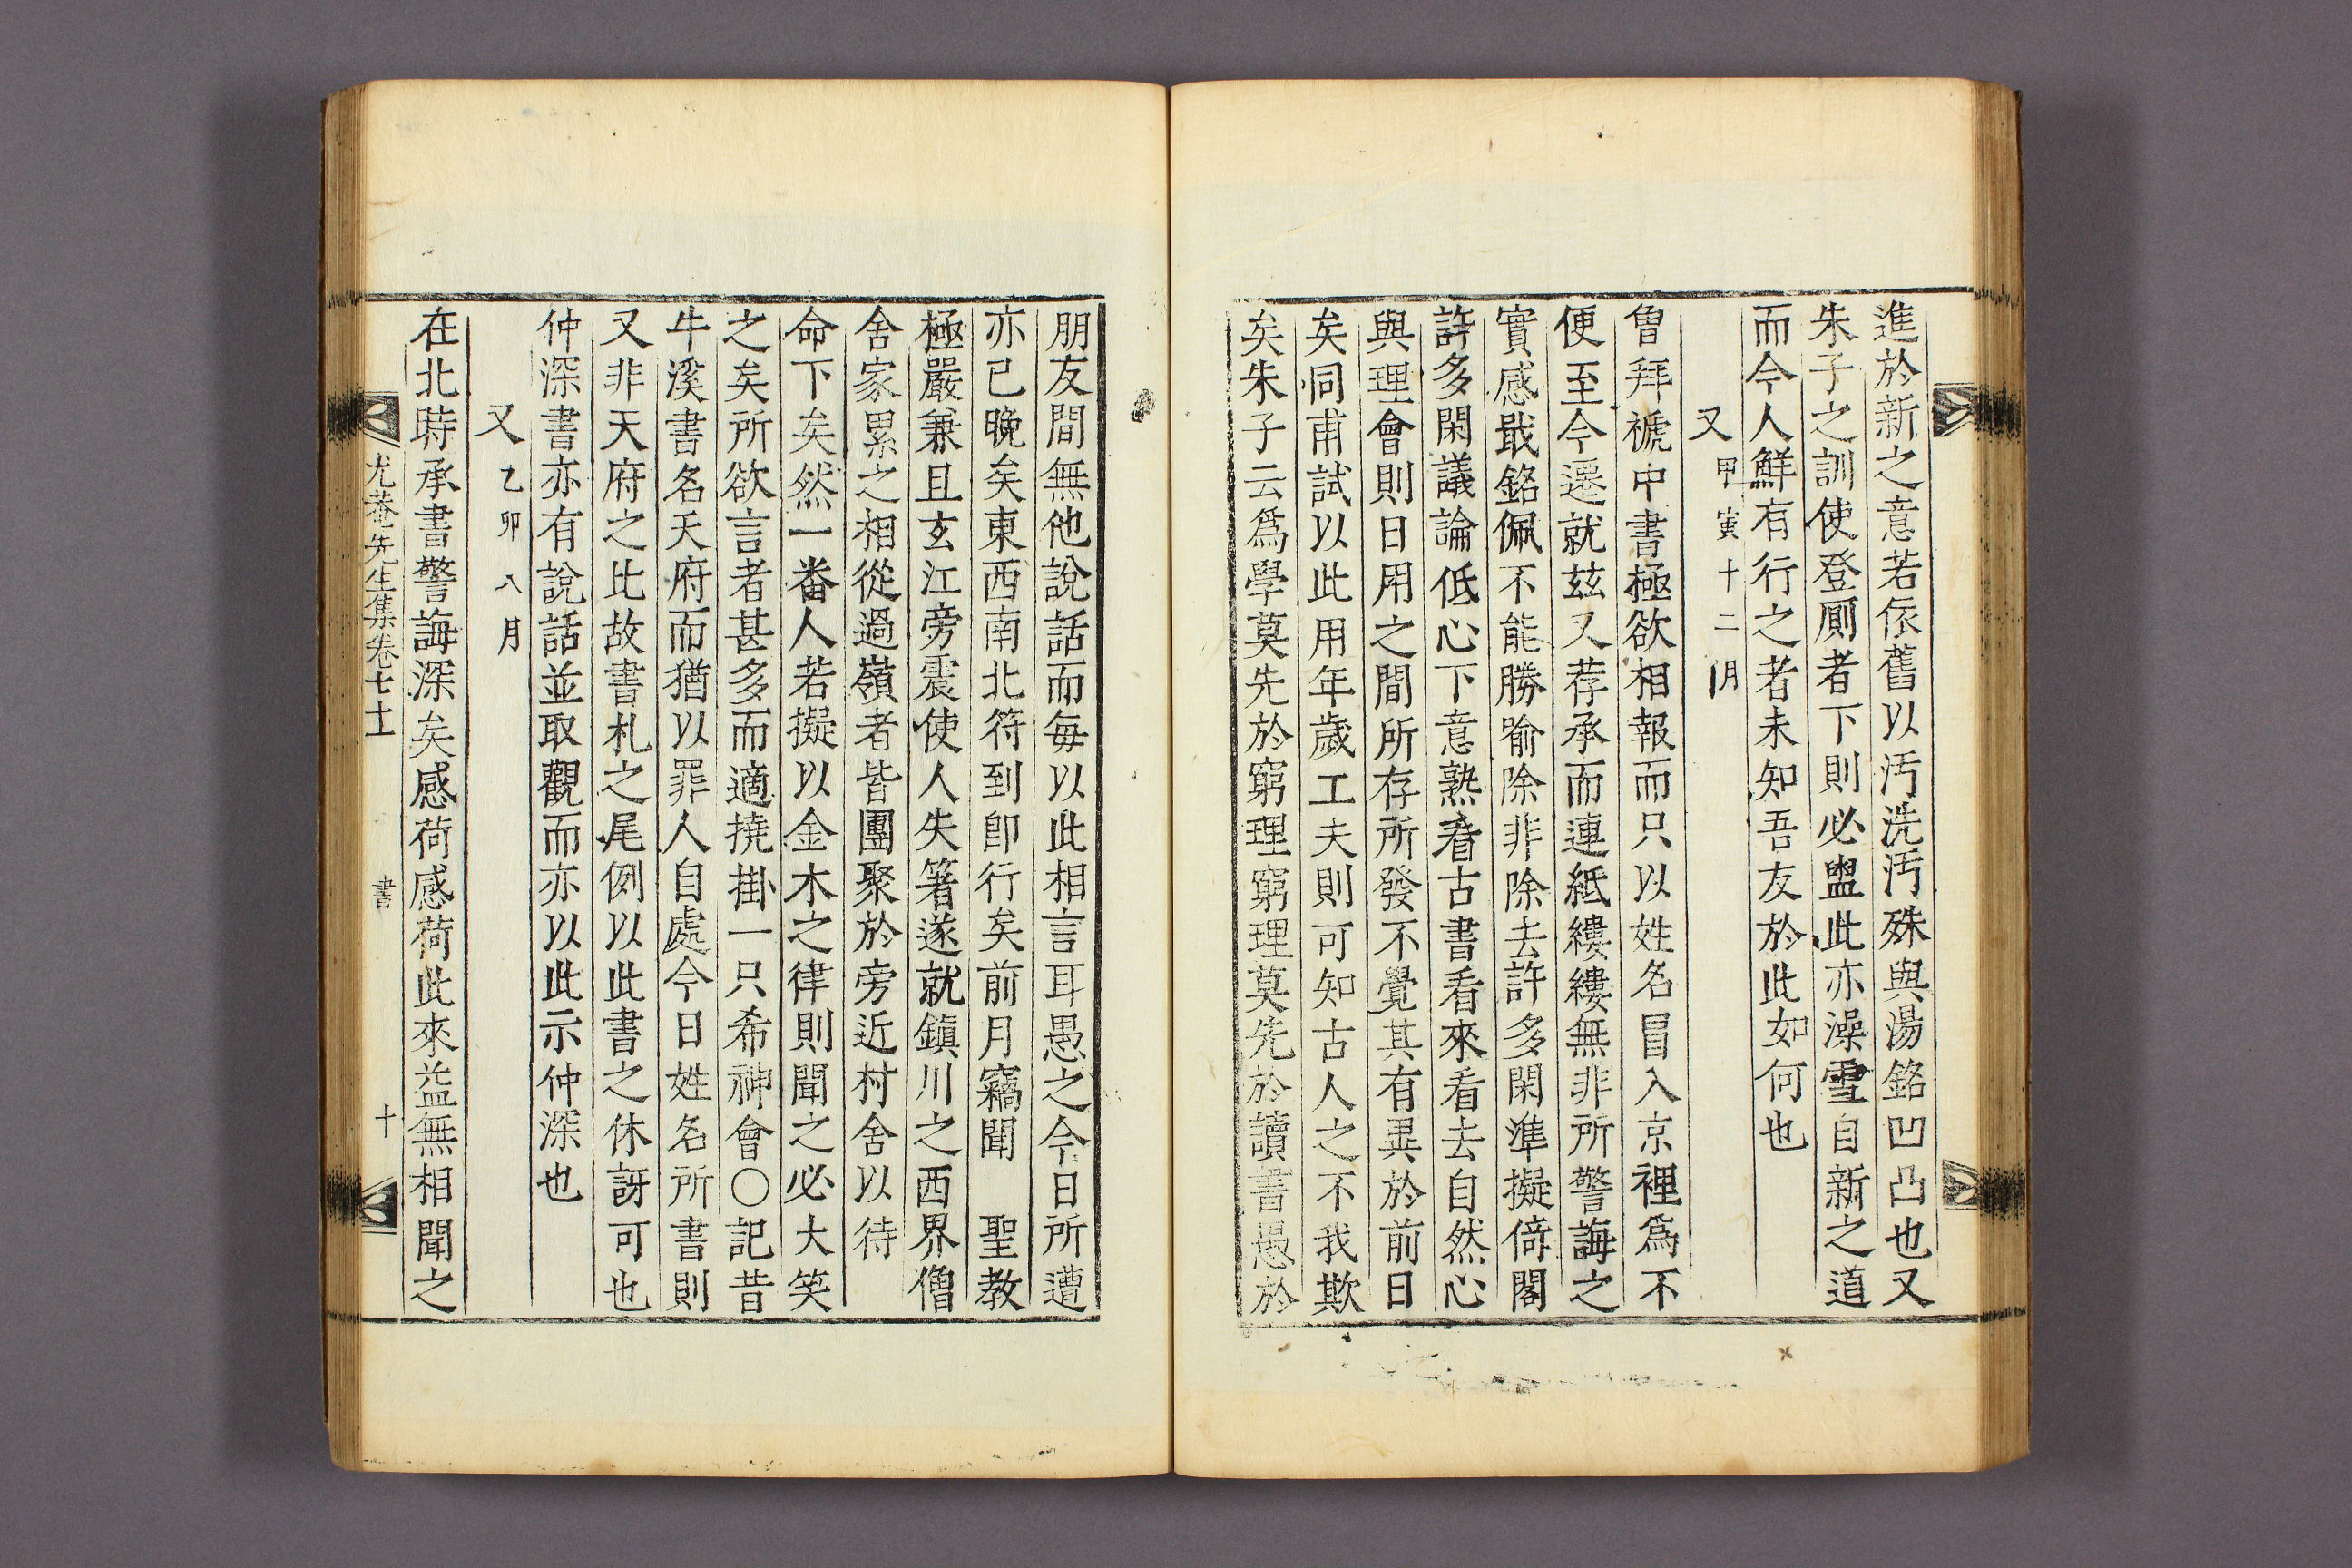 進於新之意若依舊以汚洗汚殊與湯銘凹凸也又
朱子之訓使登厠者下則必盥此亦澡雪自新之道
而今人鮮有行之者未知吾友於此如何也
又甲寅十二月
曾拜褫中書極欲相報而只以姓名冒入京裡爲不
便至今遷就玆又荐承而連紙縷縷無非所警誨之
實感戢銘佩不能勝喩除非除去許多閑準擬倚閣
許多閑議論低心下意熟看古書看來看去自然心
與理會則日用之間所存所發不覺其有異於前日
矣同甫試以此用年歲工夫則可知古人之不我欺
矣朱子云爲學莫先於窮理窮理莫先於讀書愚於
朋友間無他說話而每以此相言耳愚之今日所遭
亦已晚矣東西南北符到卽行矣前月竊聞　聖教
極嚴兼且玄江旁震使人失箸遂就鎭川之西界僧
舍家累之相從過嶺者皆團聚於旁近村舍以待
命下矣然一番人若擬以金木之律則聞之必大笑
之矣所欲言者甚多而適撓掛一只希神會〇記昔
牛溪書名天府而猶以罪人自處今日姓名所書則
又非天府之比故書札之尾例以此書之休訝可也
仲深書亦有說話並取觀而亦以此示仲深也
又乙卯八月
在北時承書警誨深矣感荷感荷此來益無相聞之
尤菴先生集卷七十 書 十